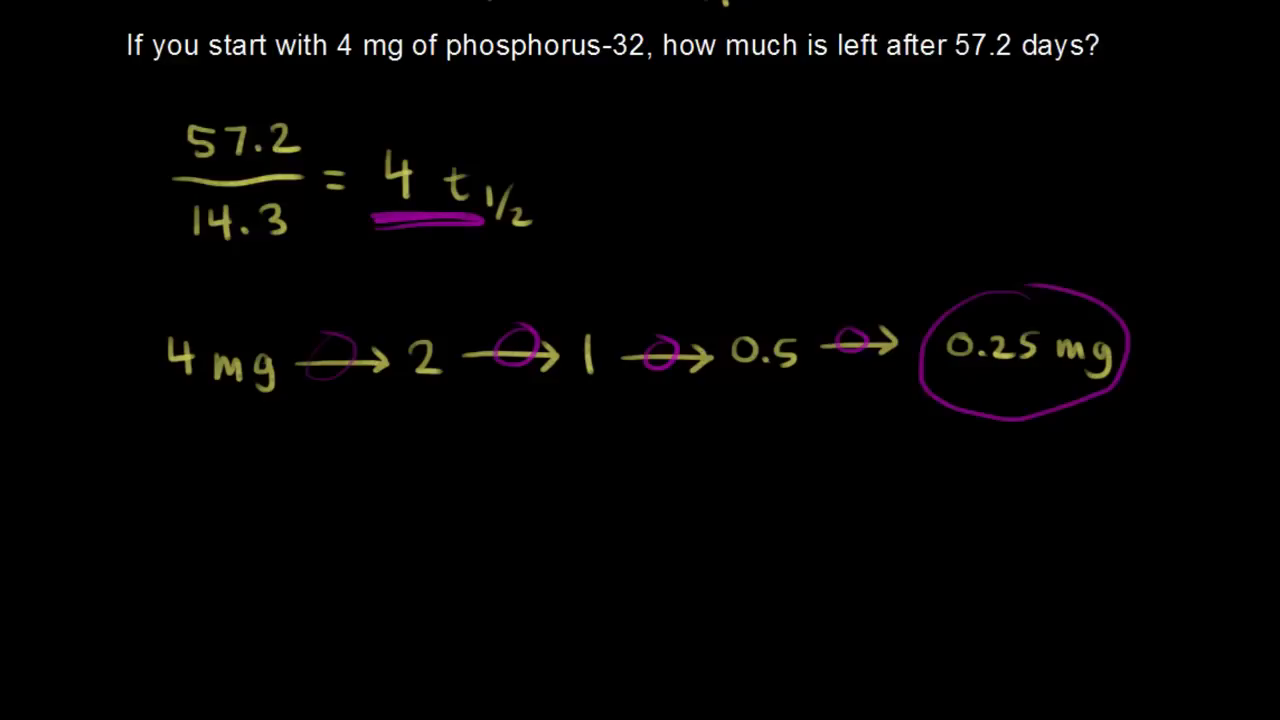 If you start with 4 mg of phosphorus-32, how much is left after 57.2 days?
57.2
14.3
= 4 t 1/2
4 mg → 2 → 1 → 0.5 → 0.25 mg